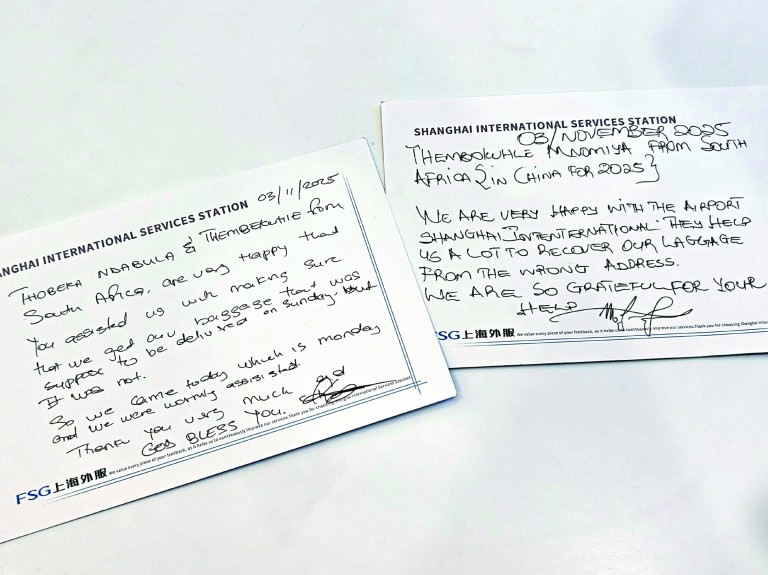 ANGHAI INTERNATIONAL SERVICES STATION
03/11/2025
THOBEKA NDABULA & THEMBEKUHLE from
South Africa, are very happy that
You assisted us with making sure
that we get our baggage that was
suppose to be delivered on sunday. But
It was not.
So we came today which is monday
and we were warmly assisted.
Thank you very much and
GOD BLESS YOU.
We value every piece of your feedback, as it helps us to continuously improve our services.Thank you for choosing Shanghai International Services Station!
FSG上海外服
SHANGHAI INTERNATIONAL SERVICES STATION
03/NOVEMBER 2025
THEMBOKUHLE MNOMIYA FROM SOUTH
AFRICA {IN CHINA FOR 2025}
WE ARE VERY HAPPY WITH THE AIRPORT
SHANGHAI INTENTERNATIONAL. THEY HELP
US A LOT TO RECOVER OUR LAGGAGE
FROM THE WRONG ADDRESS.
WE ARE SO GRATIEFUL FOR YOUR
HELP
SG上海外服 We value every piece of your feedback, as it helps us to continuously improve our services.Thank you for choosing Shanghai Interna